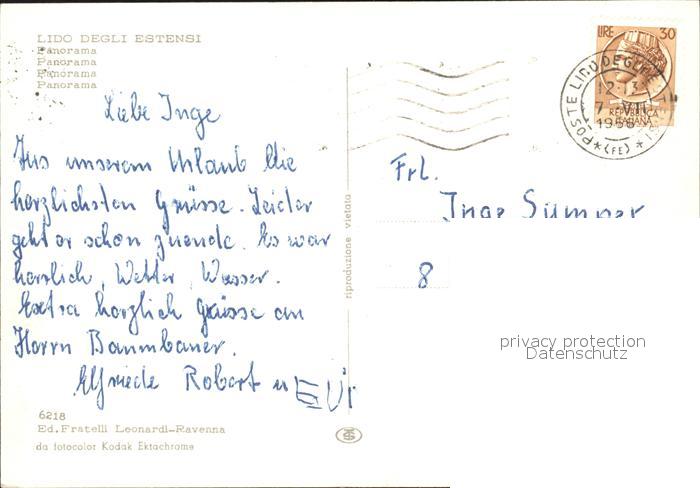 LIDO DEGLI ESTENSI
Panorama
Panorama
Panorama
Panorama
LIRE 30
REPVBBLICA
ITALIANA
POSTE LIDO DEGLI ESTENSI
12-13
7 VII
1966
(FE)
Liebe Inge
Aus unserem Urlaub die
herzlichsten Grüsse. Leider
geht er schon zuende. Es war
herrlich, Wetter, Wasser.
Extra herzlich Grüsse an
Herrn Baumbauer.
Elfriede Robert u EVi
Frl.
Inge
8
riproduzione vietata
privacy protection
Datenschutz
6218
Ed. Fratelli Leonardi-Ravenna
da fotocolor Kodak Ektachrome